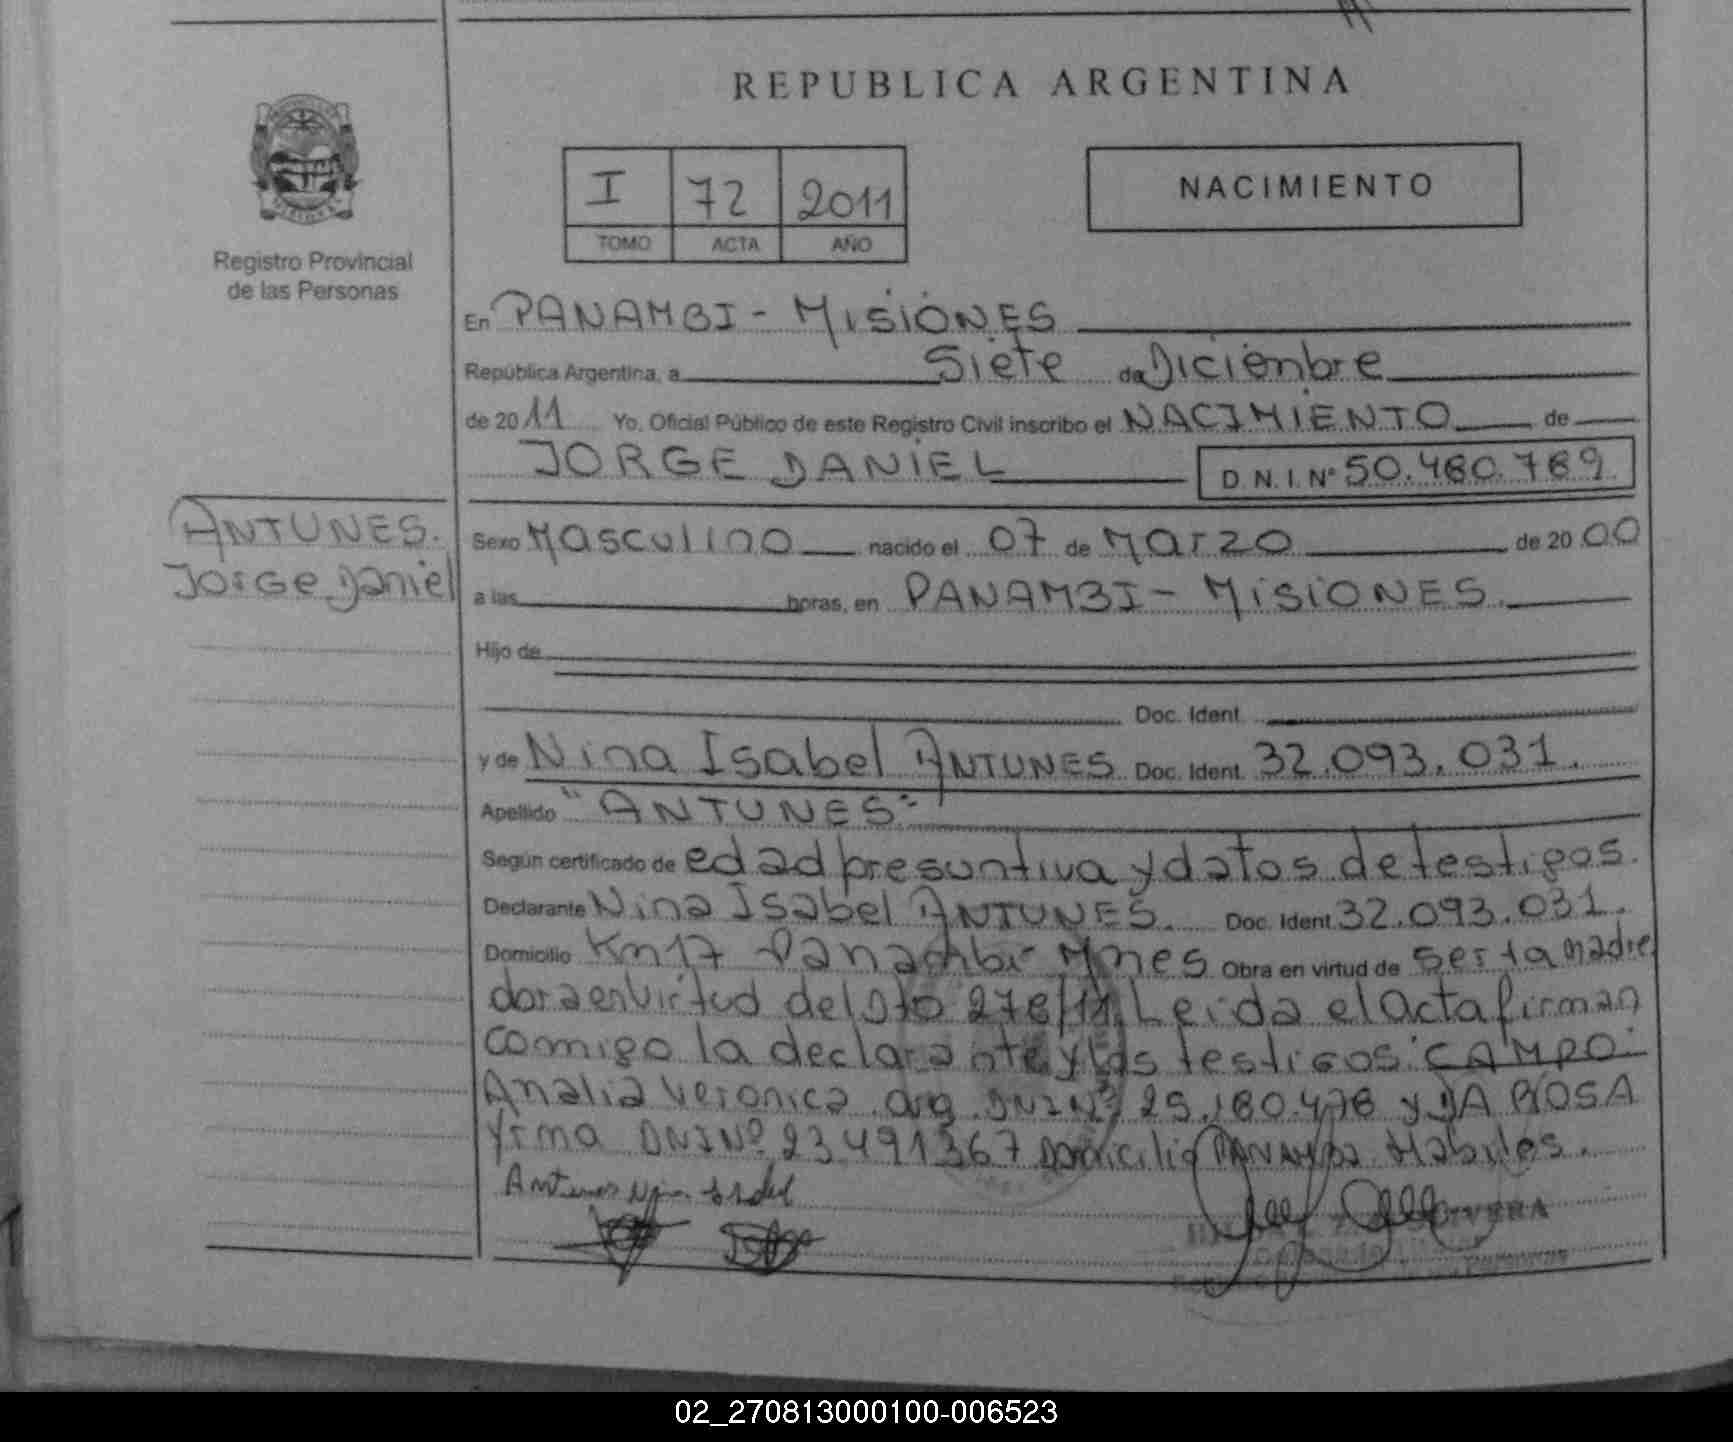 REPUBLICA ARGENTINA
I 72 2011
TOMO ACTA AÑO
NACIMIENTO
Registro Provincial
de las Personas
En PANAMBI - MISIONES
República Argentina, a Siete de Diciembre
de 2011 Yo, Oficial Público de este Registro Civil inscribo el NACIMIENTO de
JORGE DANIEL D.N.I. Nº 50.480.789
ANTUNES.
Jorge Daniel
Sexo Masculino nacido el 07 de Marzo de 2000
a las horas, en PANAMBI - MISIONES.
Hijo de
Doc. Ident.
y de Nina Isabel ANTUNES Doc. Ident. 32.093.031.
Apellido "ANTUNES"
Según certificado de edad presuntiva y datos de testigos.
Declarante Nina Isabel ANTUNES. Doc. Ident. 32.093.031.
Domicilio Km 17 Panambi Mnes Obra en virtud de ser la madre
dora en virtud del Dto 278/11. Leida el Acta firman
conmigo la declarante y los testigos: CAMPO
Analia Veronica arg. DNI Nº 25.180.478 y DA ROSA
Yrma DNI Nº 23491367 Domicilio Habiles.
Antunes Nina Isabel
02_270813000100-006523